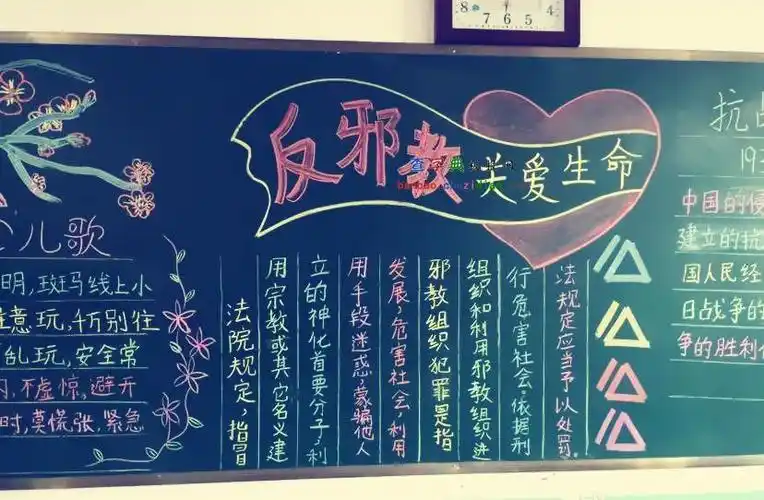 8 7 6 5 4
反邪教
关爱生命
儿歌
明,斑马线上小
意玩,千万别往
乱玩,安全常
闪,不虚惊,避开
时,莫慌张,紧急
法院规定,指冒
用宗教或其它名义建
立的神化首要分子,利
用手段迷惑,蒙骗他人
发展,危害社会,利用
邪教组织犯罪是指
组织和利用邪教组织进
行危害社会,依据刑
法规定应当予以处罚。
抗
193
中国的侵
建立的抗
国人民经
日战争的
争的胜利